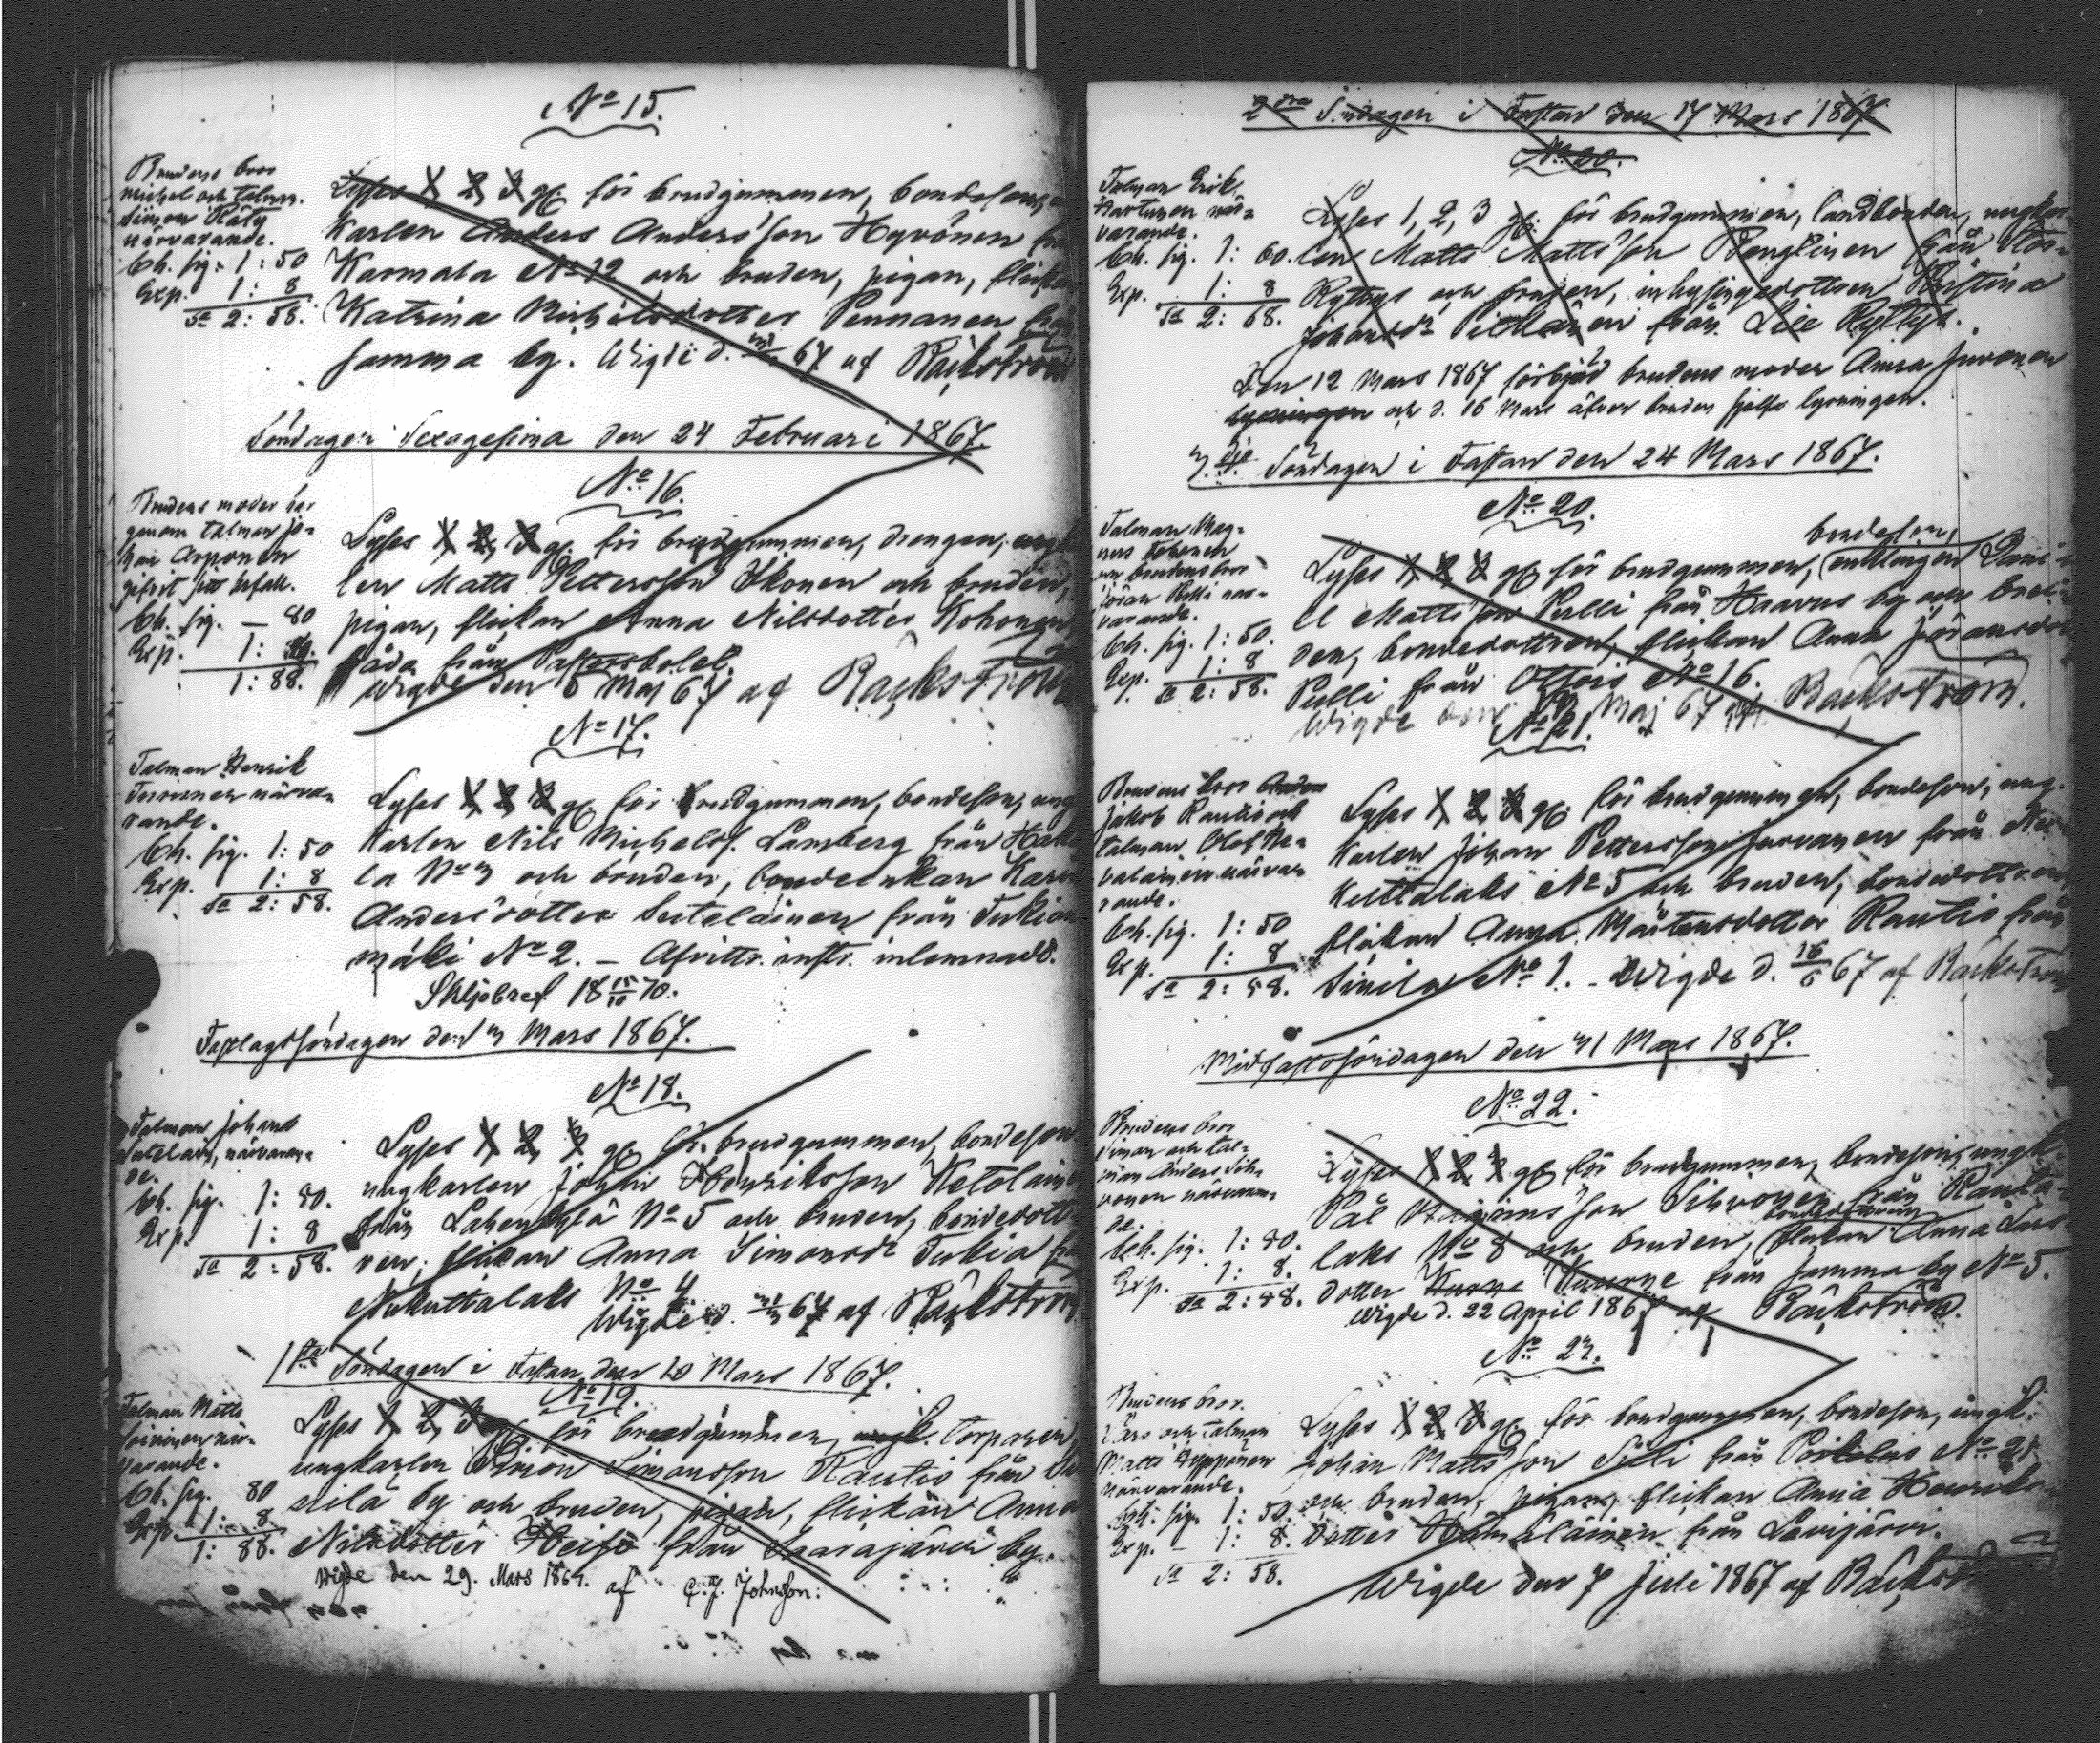 No 15.
Brudens bror
Michel och talman
Simon Räty
närvarande.
Ch. sig. 1: 50
Exp. 1: 8
Sa 2: 58.
Lyses 1, 2, 3 g. för brudgummen, bondeson,
Karlen Anders Andersson Hyvönen
Karmala No 12 och bruden, pigan, flickan
Katrina Michelsdotter Pennanen
samma by. Wigde d. 67 af Bäckström
Söndagen Sexagesima den 24 Februari 1867.
No 16.
Brudens moder har
genom talman Jo-
han Arponen
gifvit sitt bifall.
Ch. sig. — 80
Exp. 1: 8.
1: 88.
Lyses 1, 2, 3 g. för brudgummen, drengen,
len Matts Pettersson Ikonen och bruden,
pigan, flickan Anna Nilsdotter Kohonen
båda från Pastorsbolet.
Wigde den 5 Maj 67 af Bäckström
No 17.
Talman Henrik
närva-
rande.
Ch. sig. 1: 50
Exp. 1: 8
Sa 2: 58.
Lyses 1, 2, 3 g. för brudgummen, bondeson, ung
Karlen Nils Michelss. Lamberg från
la No 3 och bruden, bondeenkan
Andersdotter Seteläinen från Tukia
mäki No 2. — Afvittr. instr. inlemnadt.
Skiljobref 18 15/10 70.
Fastlagssöndagen den 3 Mars 1867.
No 18.
Talman Johan
närvaran-
de.
Ch. sig. 1: 50.
Exp. 1: 8
Sa 2: 58.
Lyses 1, 2, 3 g. för brudgummen, bondeson
ungkarlen Johan Henriksson Ketolainen
från Lahenkylä No 5 och bruden, bondedott-
ren, flickan Anna Simonsdr Tukia
Nukuttalaks No 4
Wigde d. 67 af Bäckström
1sta Söndagen i Fastan den 10 Mars 1867.
No 19.
Talman Matts
Toivinen när-
varande.
Ch. sig. 80
Exp. 1: 8
1: 88.
Lyses 1, 2, 3 g. för brudgummen, torparen,
ungkarlen Simon Simonsson Rautio från
nilä by och bruden, pigan, flickan Anna
Nilsdotter från Saarajärvi by.
Wigde den 29. Mars 1867. af C. J. Johnsson.
2dra Söndagen i Fastan den 17 Mars 1867
No 20.
Talman Erik
Hartunen när-
varande.
Ch. sig. 1: 60.
Exp. 1: 8
Sa 2: 68.
Lyses 1, 2, 3 g. för brudgummen, landbonden, ungkar-
len Matts Mattsson från Stor-
Ryttys och bruden, inhysingedottren Kristina
Johansdr från Lill Ryttys.
Den 12 Mars 1867 förbjöd brudens moder Anna Juvonen
lysningen och d. 16 Mars äfven bruden sjelf lysningen.
3dje Söndagen i Fastan den 24 Mars 1867.
No 20.
Talman Mag-
nus
och brudens bror
Jöran Pulli när-
varande.
Ch. sig. 1: 50.
Exp. 1: 8
Sa 2: 58.
bondeson,
Lyses 1, 2, 3 g. för brudgummen, enklingen Dani-
el Mattsson Pulli från Haavus by och bru-
den, bondedottren, flickan Anna Jöransdr
Pulli från Otsois No 16.
Wigde den Maj 67 af Bäckström.
No 21.
Brudens bror
Jakob Rautio och
talman Olof
närva-
rande.
Ch. sig. 1: 50
Exp. 1: 8
Sa 2: 58.
Lyses 1, 2, 3 g. för brudgummen, bondeson, ung-
Karlen Johan Pettersson Juvanen från
Kuttalaks No 5 och bruden, bondedottren,
flickan Anna Mårtensdotter Rautio från
No 1. — Wigde d. 16/6 67 af Bäckström
Midfastosöndagen den 31 Mars 1867.
No 22.
Brudens bror
Simon och tal-
man Anders Sih-
vonen närvaran-
de.
Ch. sig. 1: 50.
Exp. 1: 8.
Sa 2: 58.
Lyses 1, 2, 3 g. för brudgummen, bondeson, ungk.
Pål Sihvonen från Ranta-
bondedottren
laks No 8 och bruden, flickan Anna Lars-
dotter Kuurne från samma by No 5.
Wigde d. 22 April 1867 af Bäckström.
No 23.
Brudens bror
Lars och talman
Matts Hyppönen
närvarande.
Ch. sig. 1: 50.
Exp. — 1: 8.
Sa 2: 58.
Lyses 1, 2, 3 g. för brudgummen, bondeson, ungk.
Johan Mattsson Silli från No 21
och bruden, pigan, flickan Anna Henriks-
dotter Hämäläinen från Lavijärvi.
Wigde den 7 Juli 1867 af Bäckst